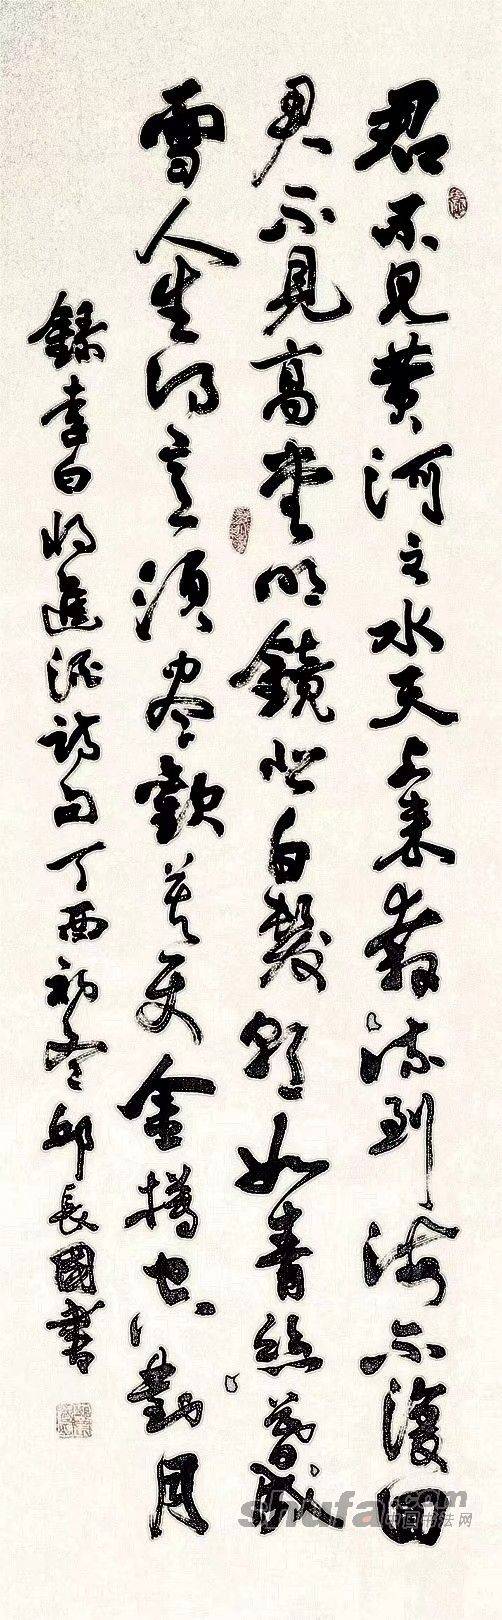 君不见黄河之水天上来奔流到海不復回
君不見高堂明鏡悲白髮朝如青絲暮成
雪人生得意須尽歡莫使金樽空對月
錄李白将進酒詩句丁酉初冬邱長國书
shufa.com
中国书法网